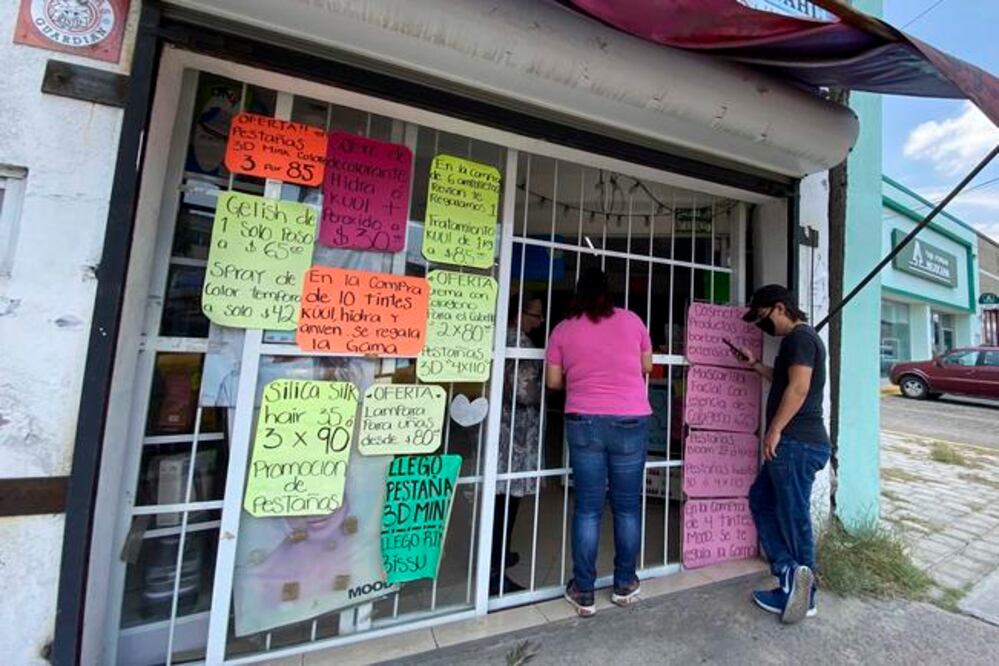 GUARDIAN
OFERTA!!
Pestañas
3D Mink Color
3 Por 85
decolorante
Hidra ó
KUUL +
Peroxido
$30
En la compra
de 6 ampolletas
Revlon te
Regalamos 1
Tratamiento
KUUL de 1kg
a $85
Gelish de
1 Solo Paso
a $65
Spray de
Color
$42
En la compra
de 10 tintes
KUUL, hidra y
anven. se regala
la Gama
OFERTA
colageno
Para el Cabello
2 x $80
Pestañas
3D $4x110
Silica Silk
hair 35
3 x 90
Promocion de
Pestañas
OFERTA
Lampara Para
Para uñas
desde $80
LLEGO
PESTAÑA
3D MIN
LLEGO
BISSU
MOOD
Productos de
barberia
extensiones
Facial con
esencia de
Colageno $
Pestañas
Pestañas
En la compra
de 4 tintes
Mood. Se re
gala la gama
MEXICANA